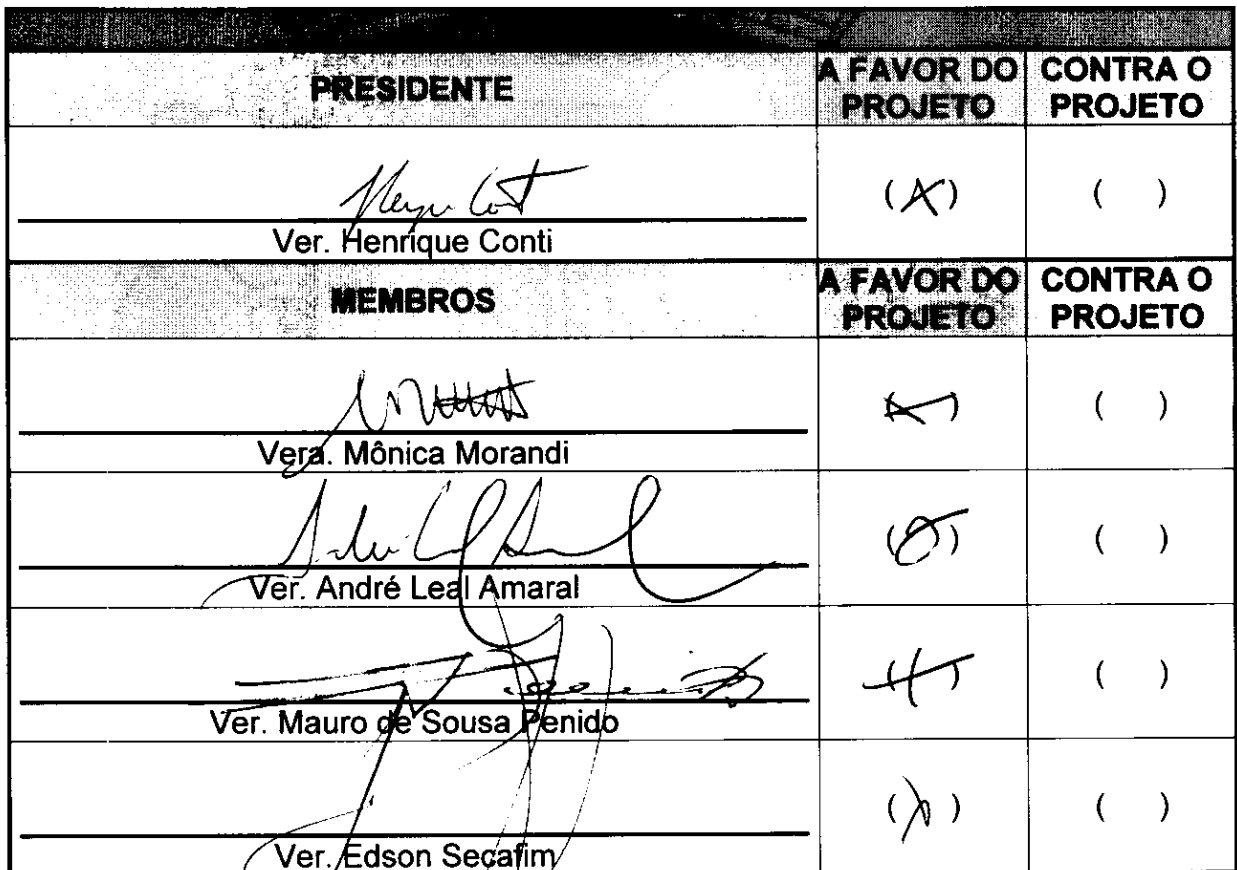 PRESIDENTE A FAVOR DO PROJETO CONTRA O PROJETO
(X) ( )
Ver. Henrique Conti
MEMBROS A FAVOR DO PROJETO CONTRA O PROJETO
(X) ( )
Vera. Mônica Morandi
( ) ( )
Ver. André Leal Amaral
( ) ( )
Ver. Mauro de Sousa Penido
( ) ( )
Ver. Edson Secafim